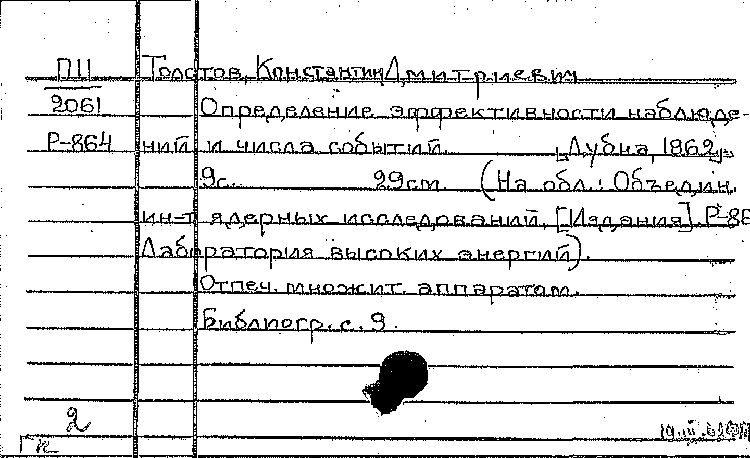 П11 Толстов, Константин Дмитриевич
2061 Определение эффективности наблюде-
Р-864 ний и числа событий. [Дубна, 1862].
9с. 29см. (На обл.: Объедин.
ин-т ядерных исследований. [Издания]. Р-86
Лаборатория высоких энергий).
Отпеч. множит. аппаратом.
Библиогр. с. 9.
2